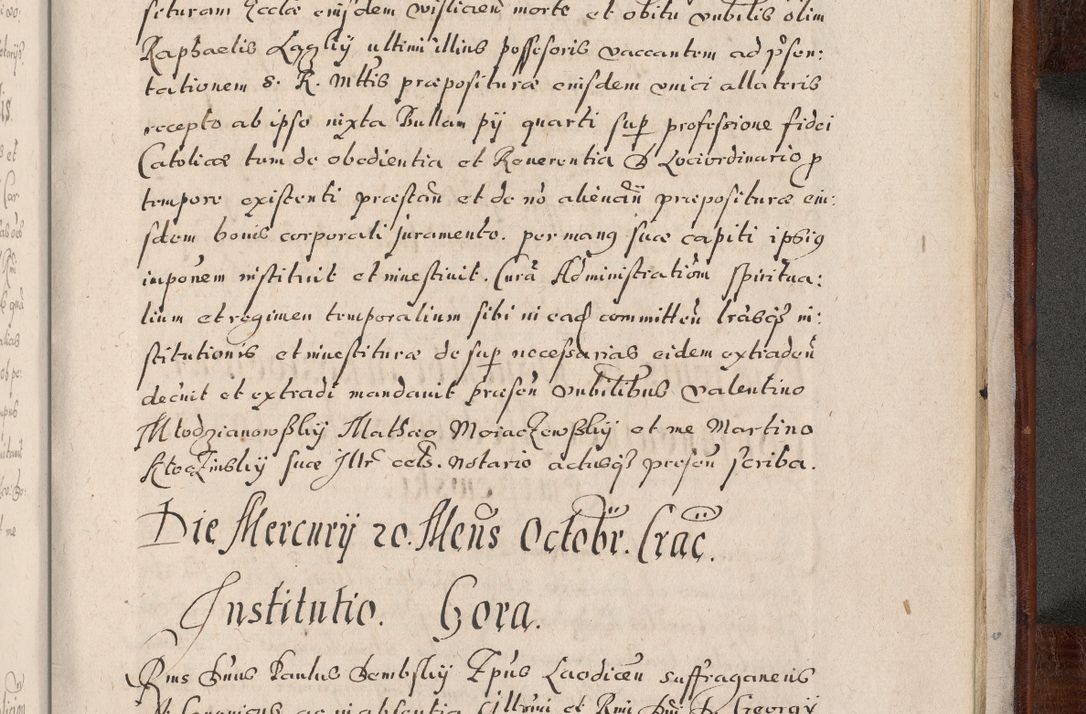 situram Ecclae eiusdem Visliciensi morte et obitu Nobilis olim
Raphaelis Lagkij ultimi illius possesoris vaccantem ad psen:
tationem S. R. Mttis præpositurae eiusdem unici allateris
recepto ab ipso iuxta Bullam pij quarti sup professione fidei
Catolicae tum de obedientia et Reuerentia D Lociordinario p
tempore existenti præstan et de no alienan præpositurae eiu:
sdem bonis corporali juramento. per manq suae capiti ipsiq
inponem instituit et inuestiuit. Cura Administration spiritua:
lium et regimen temporalium sibi in ead committen lrasqs in:
stitutionis et inuestiturae desup necessarias eidem extraden
decuit et extradi mandauit præsen Nobilibus Valentino
Młodzianowskij Mathæo Moiaczewskij et me Martino
Kłoczinskij suae Illr cels. Notario actusqs presen scriba.
Die Mercurij 20. Mens Octobr. Crac.
Institutio. Gora.
Rms Dnus Paulus Dembskij Epus Laodicen suffraganeus
ac in absentia Illmi et Rmi Dni D. Georgij